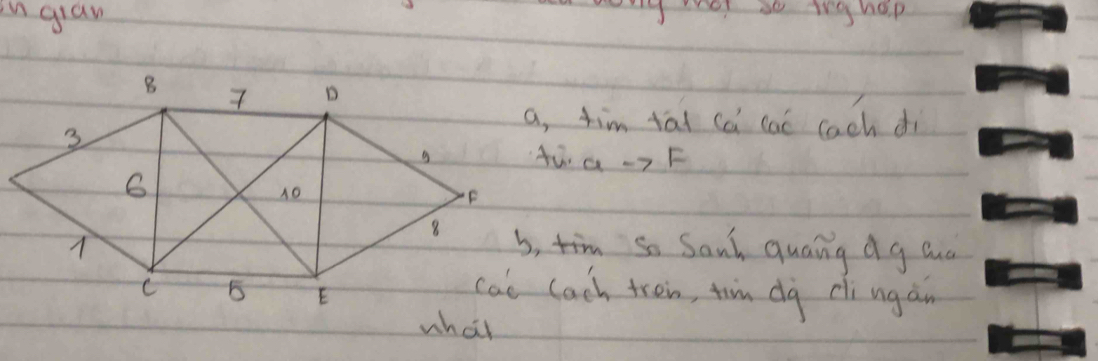 n gian
một số trg hợp
B 7 D
3
a, tìm tất cả các cách đi
9
từ a -> F
6
10
F
1
8
b, tìm so sánh quãng đg của
C 5 E
các cách trên, tìm đg đi ngắn
nhất